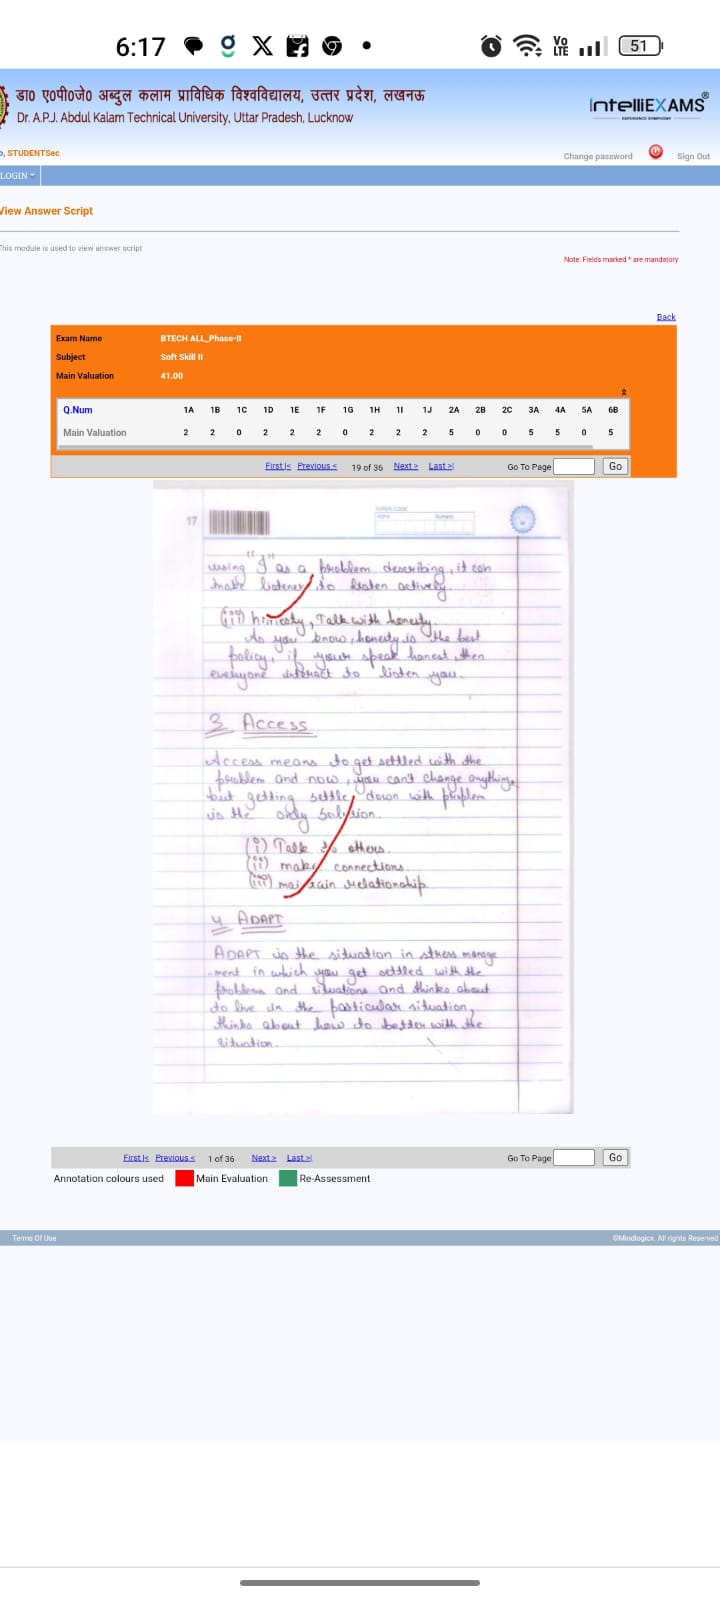 6:17
VoLTE
51
डा0 ए0पी0जे0 अब्दुल कलाम प्राविधिक विश्वविद्यालय, उत्तर प्रदेश, लखनऊ
Dr. A.P.J. Abdul Kalam Technical University, Uttar Pradesh, Lucknow
IntelliEXAMS®
o, STUDENTSec
Change password Sign Out
LOGIN
View Answer Script
This module is used to view answer script
Note: Fields marked * are mandatory
Back
Exam Name BTECH ALL_Phase-II
Subject Soft Skill II
Main Valuation 41.00
Q.Num 1A 1B 1C 1D 1E 1F 1G 1H 1I 1J 2A 2B 2C 3A 4A 5A 6B
Main Valuation 2 2 0 2 2 2 0 2 2 2 5 0 0 5 5 0 5
First|< Previous < 19 of 36 Next > Last >| Go To Page Go
17
using "I" as a problem describing, it can
make listener to listen actively.
(iii) honesty, Talk with honesty.
As you know, honesty is the best
policy, if your speak honest, then
everyone interact to listen you.
3 Access
Access means to get settled with the
problem and now, you can't change anything,
but getting settle down with problem
is the only solution.
(i) Talk to others.
(ii) make connections.
(iii) maintain relationship
4 ADAPT
ADAPT is the situation in stress manage
-ment in which you get settled with the
problems and situations and thinks about
to live in the particular situation,
thinks about how to better with the
situation.
First|< Previous < 1 of 36 Next > Last >| Go To Page Go
Annotation colours used Main Evaluation Re-Assessment
Terms Of Use ©Mindlogicx. All rights Reserved